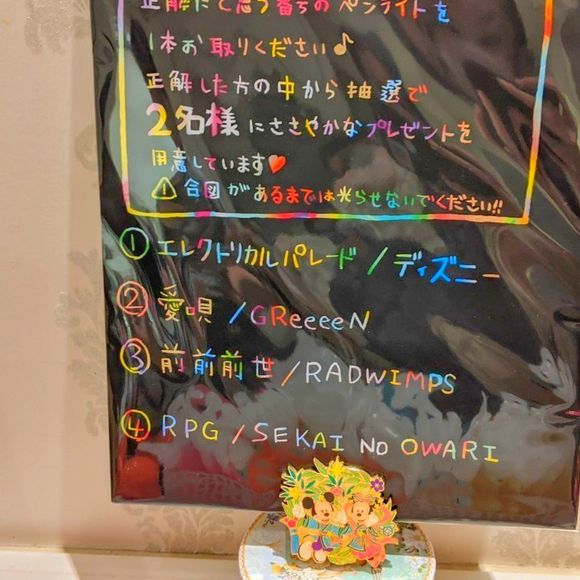 正解だと思う番号のペンライトを
1本お取りください♪
正解した方の中から抽選で
2名様にささやかなプレゼントを
用意しています♥
⚠合図があるまでは光らせないでください!!
①エレクトリカルパレード/ディズニー
②愛唄/GReeeeN
③前前前世/RADWIMPS
④RPG/SEKAI NO OWARI